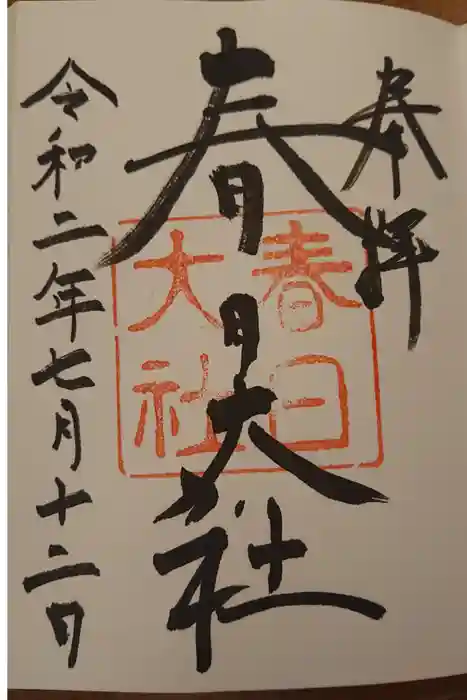 奉拝
春日大社
春日
大社
令和二年七月十二日